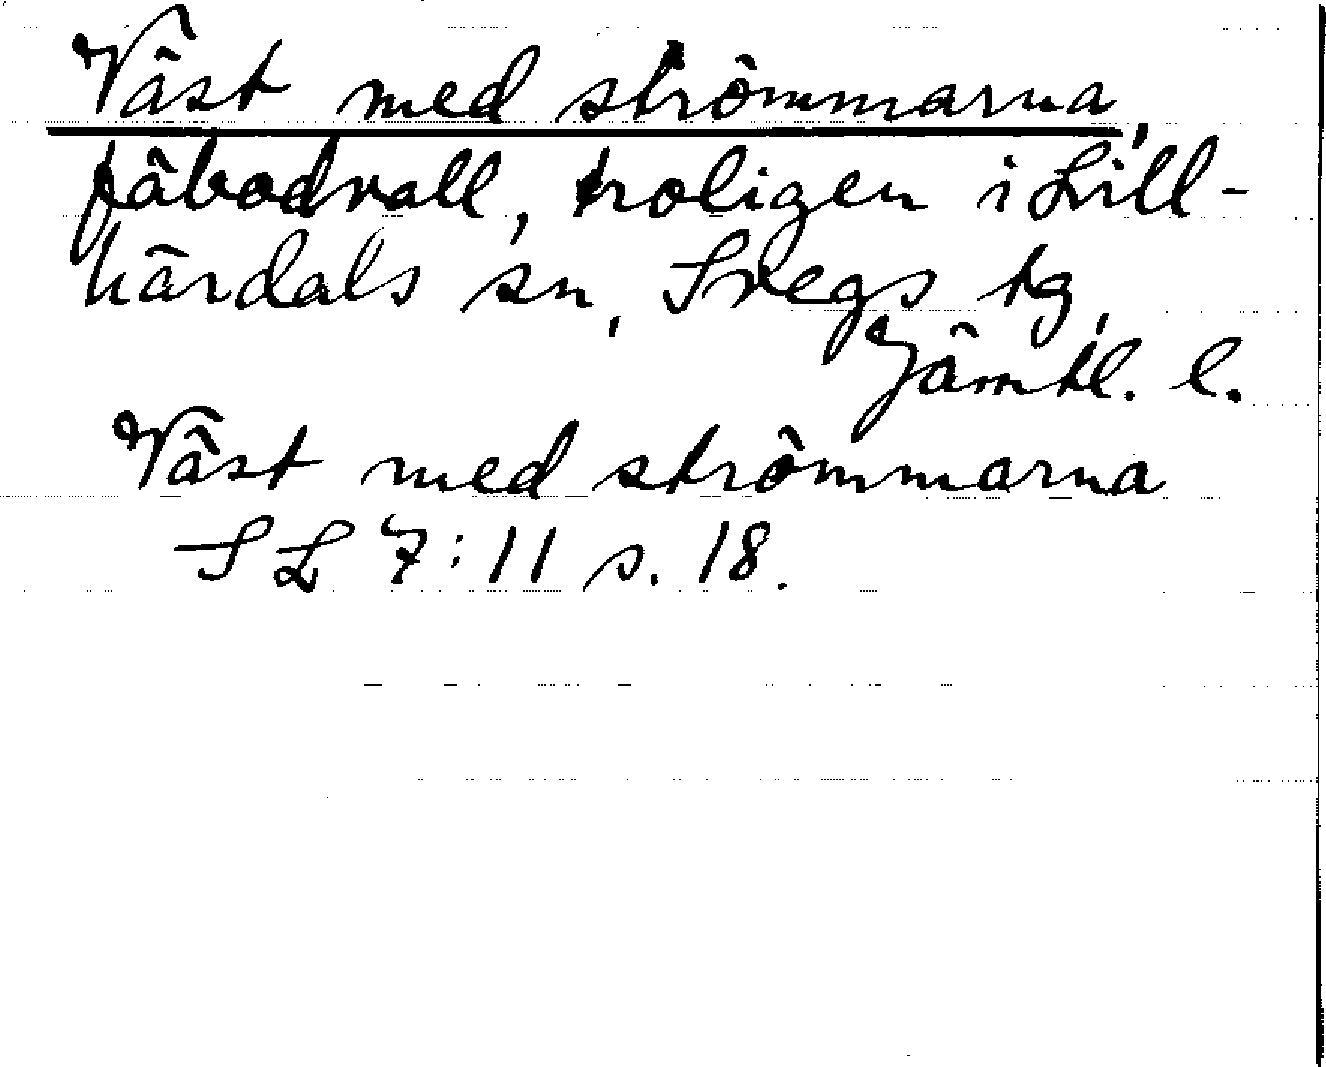 Väst med strömmarna,
fäbodvall, troligen i Lill-
härdals sn, Svegs tg,
Jämtl. l.
Väst med strömmarna
SL 7:11 s. 18.